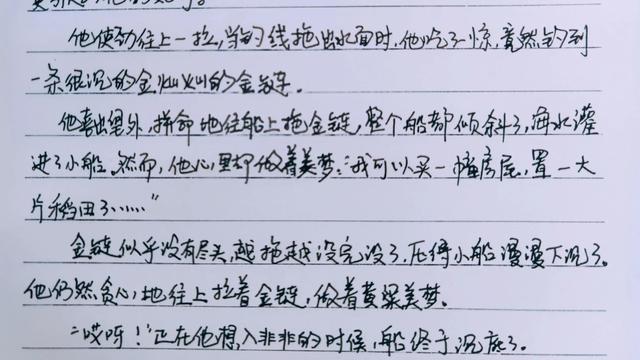 他使劲往上一拉,当钓线拖出水面时,他吃了一惊,竟然钓到
一条很沉的金灿灿的金链。
他喜出望外,拼命地往船上拖金链,整个船都倾斜了,海水灌
进了小船。然而,他心里却做着美梦:“我可以买一幢房屋,置一大
片稻田了……”
金链似乎没有尽头,越拖越没完没了,压得小船漫漫下沉了。
他仍然贪心,地往上拉着金链,做着黄粱美梦。
“哎呀!”正在他想入非非的时候,船终于沉底了。